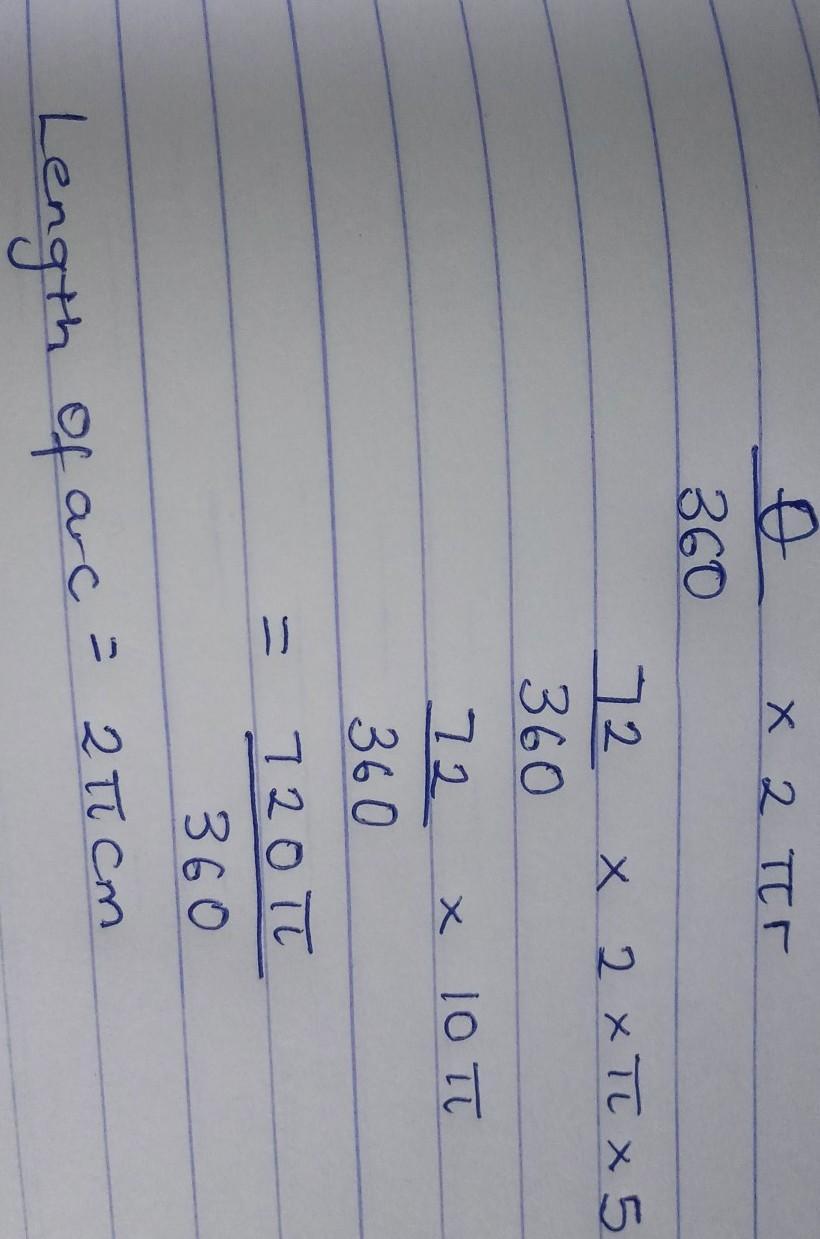 θ/360 × 2πr
72/360 × 2 × π × 5
72/360 × 10π
= 720π/360
Length of arc = 2π cm